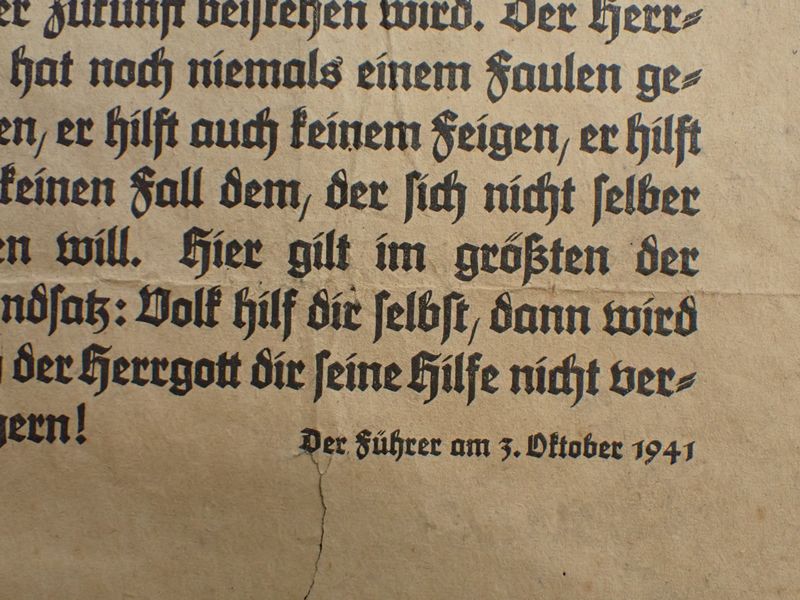 er Zukunft beistehen wird. Der Herr=
hat noch niemals einem Faulen ge=
en, er hilft auch keinem Feigen, er hilft
keinen Fall dem, der sich nicht selber
en will. Hier gilt im größten der
ndsatz: Volk hilf dir selbst, dann wird
der Herrgott dir seine Hilfe nicht ver=
gern!
Der Führer am 3. Oktober 1941